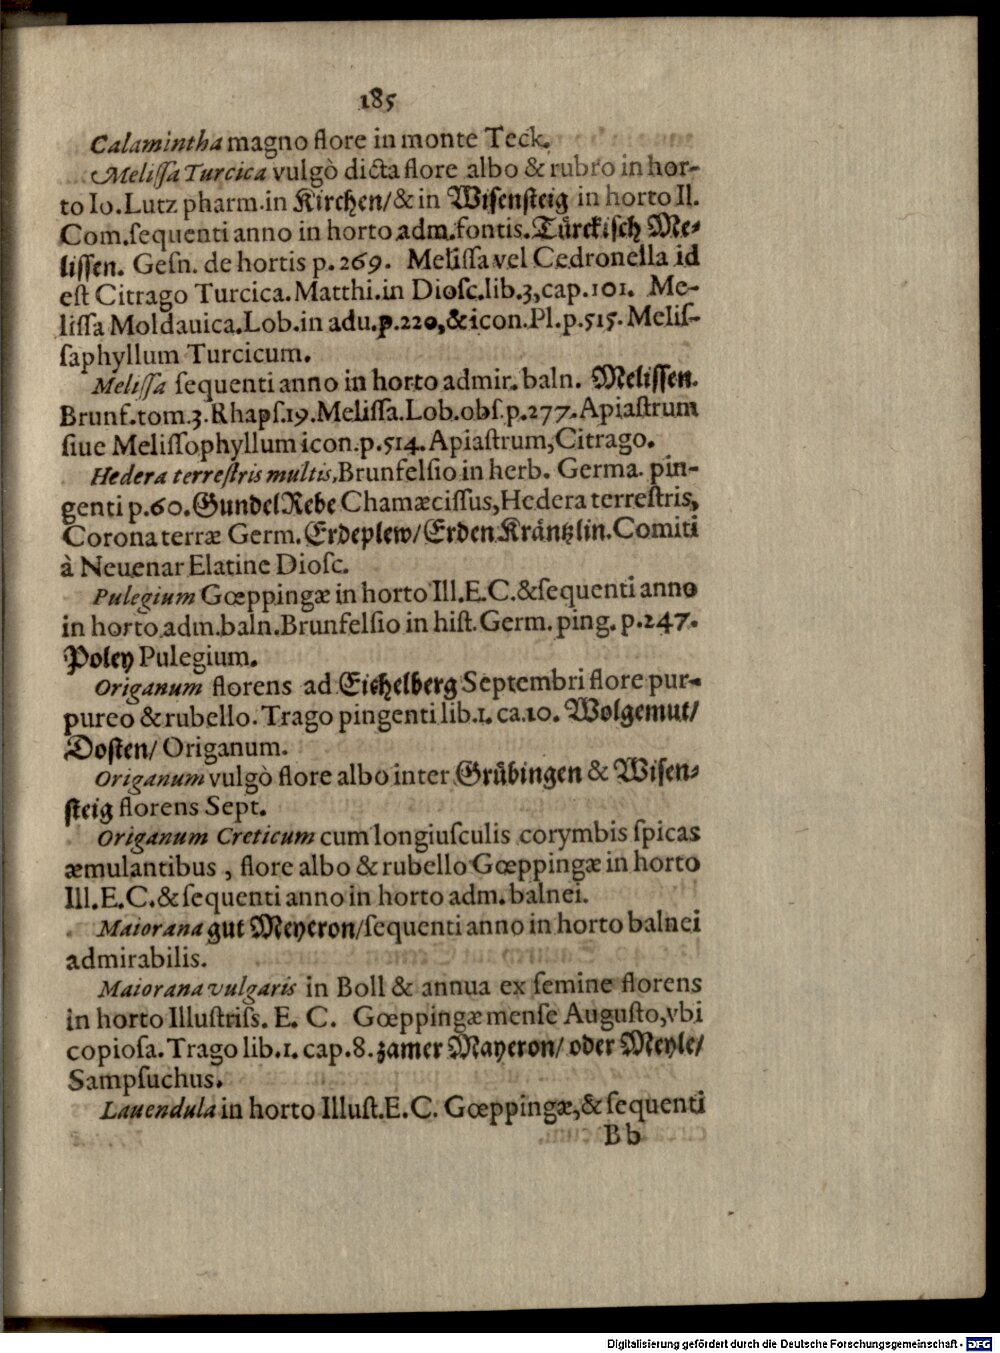 185
Calamintha magno flore in monte Teck.
Meliſſa Turcica vulgò dicta flore albo & rubro in hor-
to Io. Lutz pharm. in Kirchen/ & in Wiſenſteig in horto Il.
Com. ſequenti anno in horto adm. fontis. Tuͤrckiſch Me-
liſſen. Geſn. de hortis p. 269. Meliſſa vel Cedronella id
eſt Citrago Turcica. Matthi. in Dioſc. lib. 3, cap. 101. Me-
liſſa Moldauica. Lob. in adu. p. 220, & icon. Pl. p. 515. Meliſ-
ſaphyllum Turcicum.
Meliſſa ſequenti anno in horto admir. baln. Meliſſen.
Brunf. tom. 3. Rhapſ. 19. Meliſſa. Lob. obſ. p. 277. Apiaſtrum
ſiue Meliſſophyllum icon. p. 514. Apiaſtrum, Citrago.
Hedera terreſtris multis, Brunfelſio in herb. Germa. pin-
genti p. 60. Gundel Rebe Chamæciſſus, Hedera terreſtris,
Corona terræ Germ. Erdeplew/ Erden Kraͤntzlin. Comiti
à Neuenar Elatine Dioſc.
Pulegium Gœppingæ in horto Ill. E. C. & ſequenti anno
in horto adm. baln. Brunfelſio in hiſt. Germ. ping. p. 247.
Poley Pulegium.
Origanum florens ad Eichelberg Septembri flore pur-
pureo & rubello. Trago pingenti lib. 1. ca. 10. Wolgemut/
Doſten/ Origanum.
Origanum vulgò flore albo inter Gruͤbingen & Wiſen-
ſteig florens Sept.
Origanum Creticum cum longiuſculis corymbis ſpicas
æmulantibus, flore albo & rubello Gœppingæ in horto
Ill. E. C. & ſequenti anno in horto adm. balnei.
Maiorana gut Meyeron/ ſequenti anno in horto balnei
admirabilis.
Maiorana vulgaris in Boll & annua ex ſemine florens
in horto Illuſtriſs. E. C. Gœppingæ menſe Auguſto, vbi
copioſa. Trago lib. 1. cap. 8. zamer Mayeron/ oder Meyle/
Sampſuchus.
Lauendula in horto Illuſt. E. C. Gœppingæ, & ſequenti
B b
Digitalisierung gefördert durch die Deutsche Forschungsgemeinschaft - DFG